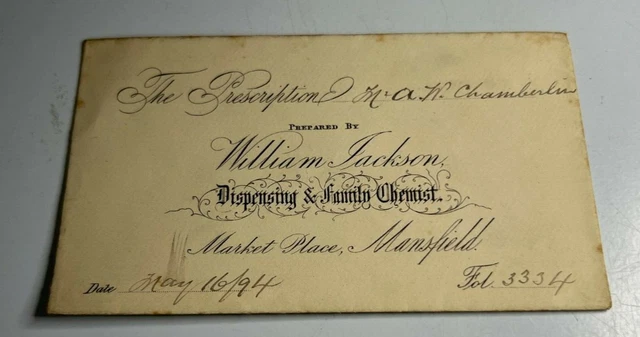 The Prescription Mr A. W. Chamberlin
Prepared By
William Jackson,
Dispensing & Family Chemist.
Market Place, Mansfield.
Date May 16/94 Fol. 3334